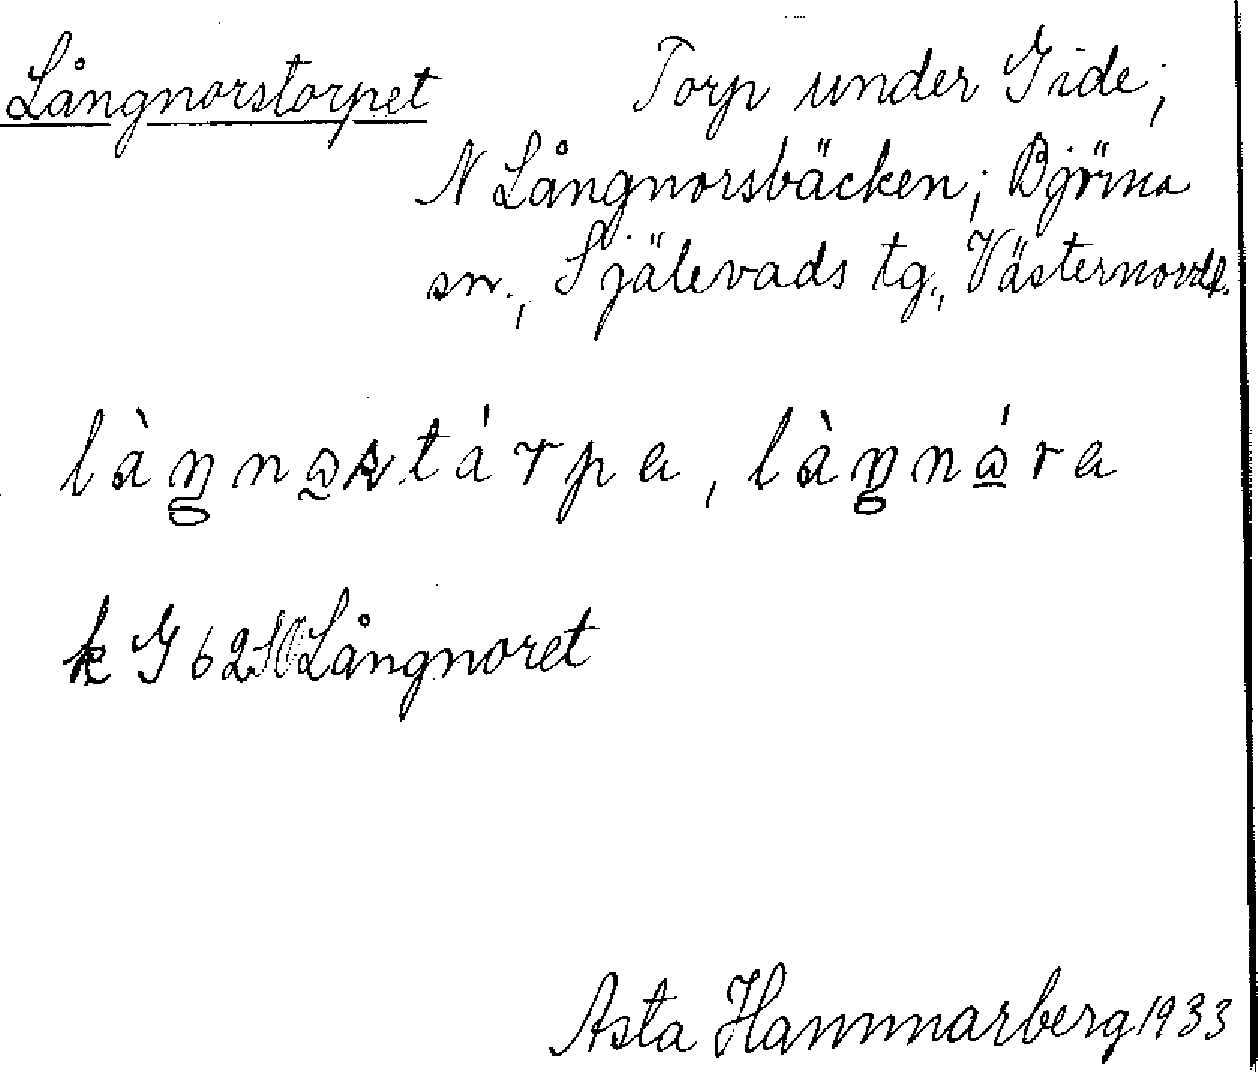 Långnorstorpet Torp under Gide;
N Långnorsbäcken; Björna
sn., Själevads tg., Västernorrl.
làŋnɷstárpa, làŋnɷ́ra
k G 6250 Långnoret
Asta Hammarberg 1933